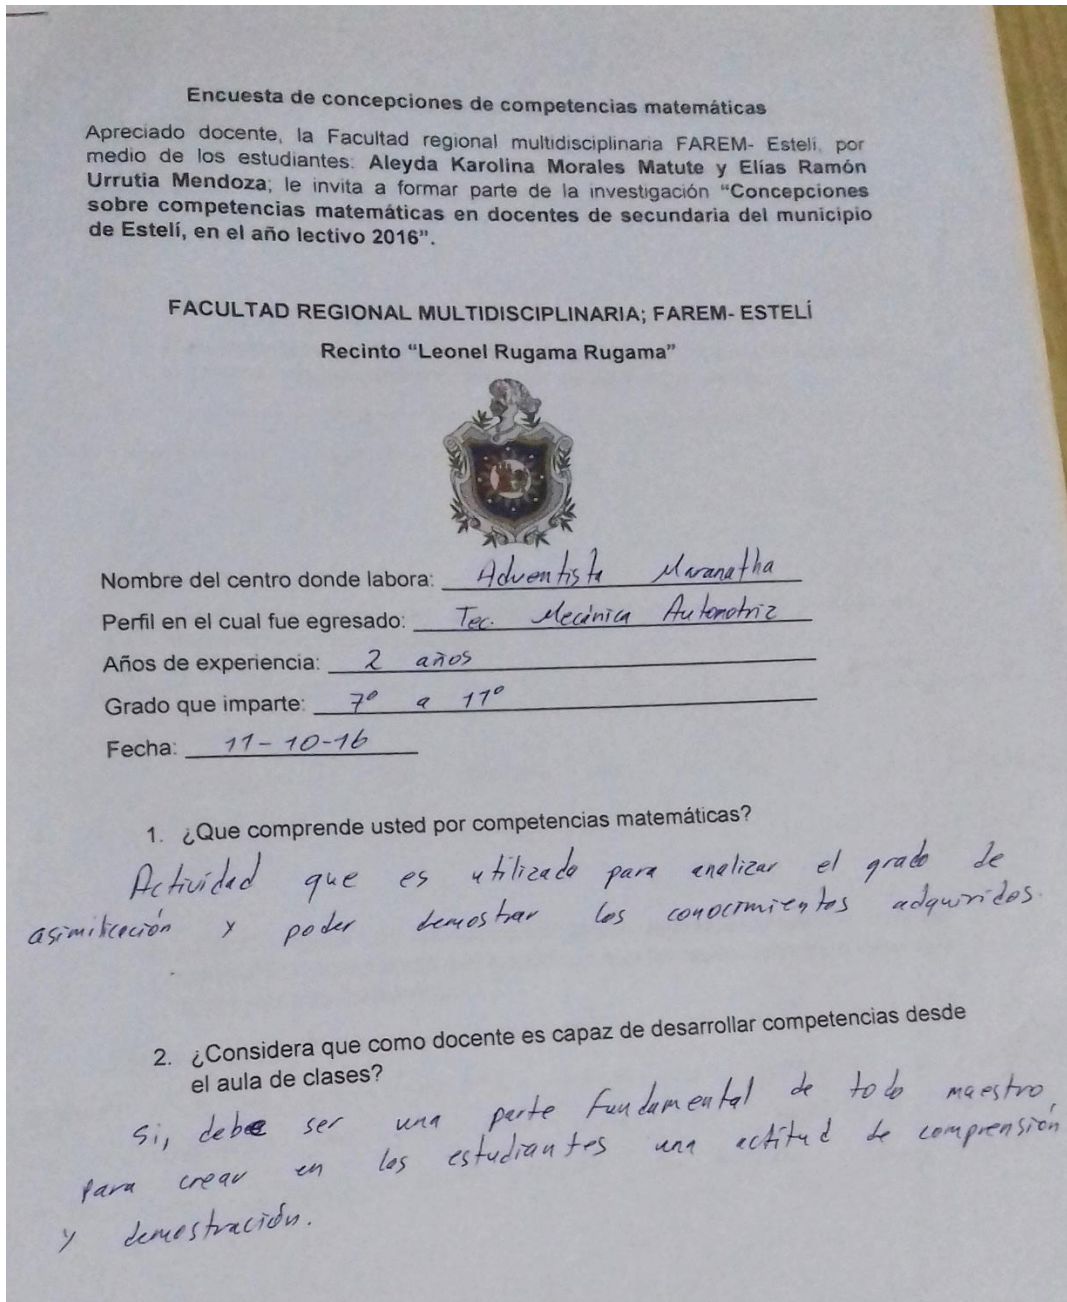 Encuesta de concepciones de competencias matemáticas
Apreciado docente, la Facultad regional multidisciplinaria FAREM- Estelí, por
medio de los estudiantes: Aleyda Karolina Morales Matute y Elías Ramón
Urrutia Mendoza; le invita a formar parte de la investigación “Concepciones
sobre competencias matemáticas en docentes de secundaria del municipio
de Estelí, en el año lectivo 2016”.
FACULTAD REGIONAL MULTIDISCIPLINARIA; FAREM- ESTELÍ
Recinto “Leonel Rugama Rugama”
Nombre del centro donde labora: Adventista Maranatha
Perfil en el cual fue egresado: Tec. Mecánica Automotriz
Años de experiencia: 2 años
Grado que imparte: 7° a 11°
Fecha: 11-10-16
1. ¿Que comprende usted por competencias matemáticas?
Actividad que es utilizado para analizar el grado de
asimilación y poder demostrar los conocimientos adquiridos.
2. ¿Considera que como docente es capaz de desarrollar competencias desde
el aula de clases?
Si, debe ser una parte fundamental de todo maestro,
para crear en los estudiantes una actitud de comprensión
y demostración.